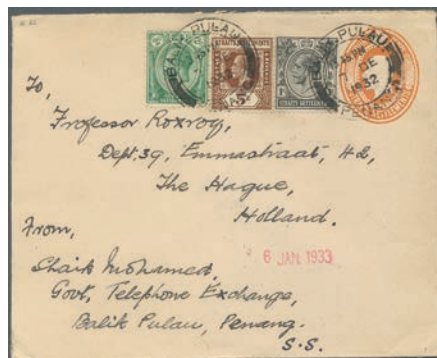 BALIK PULAU
PENANG
STRAITS SETTLEMENTS
DE
1932
To,
Professor Roxroy,
Dept: 39, Emmastraat, 42,
The Hague,
Holland.
6 JAN. 1933
From,
Shaik Mohamed,
Govt, Telephone Exchange,
Balik Pulau, Penang.
S.S.